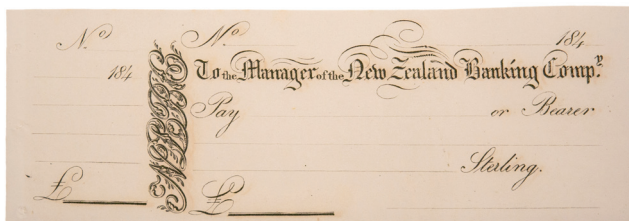 No
184
£
No 184
To the Manager of the New Zealand Banking Compy.
Pay or Bearer
Sterling.
£